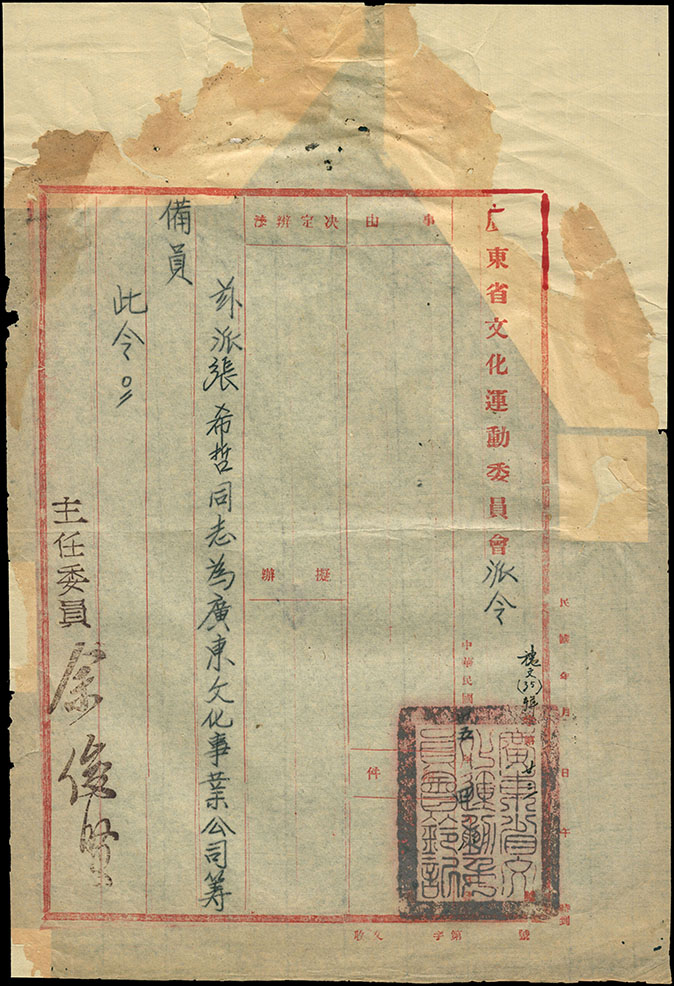 廣東省文化運動委員會派令
事由
決定辦法
擬辦
件
茲派張希哲同志為廣東文化事業公司籌
備員
此令
主任委員
中華民國
民國 年 月 日 午 時到
收文 字第 號
廣東省文
化運動委
員會鈐記